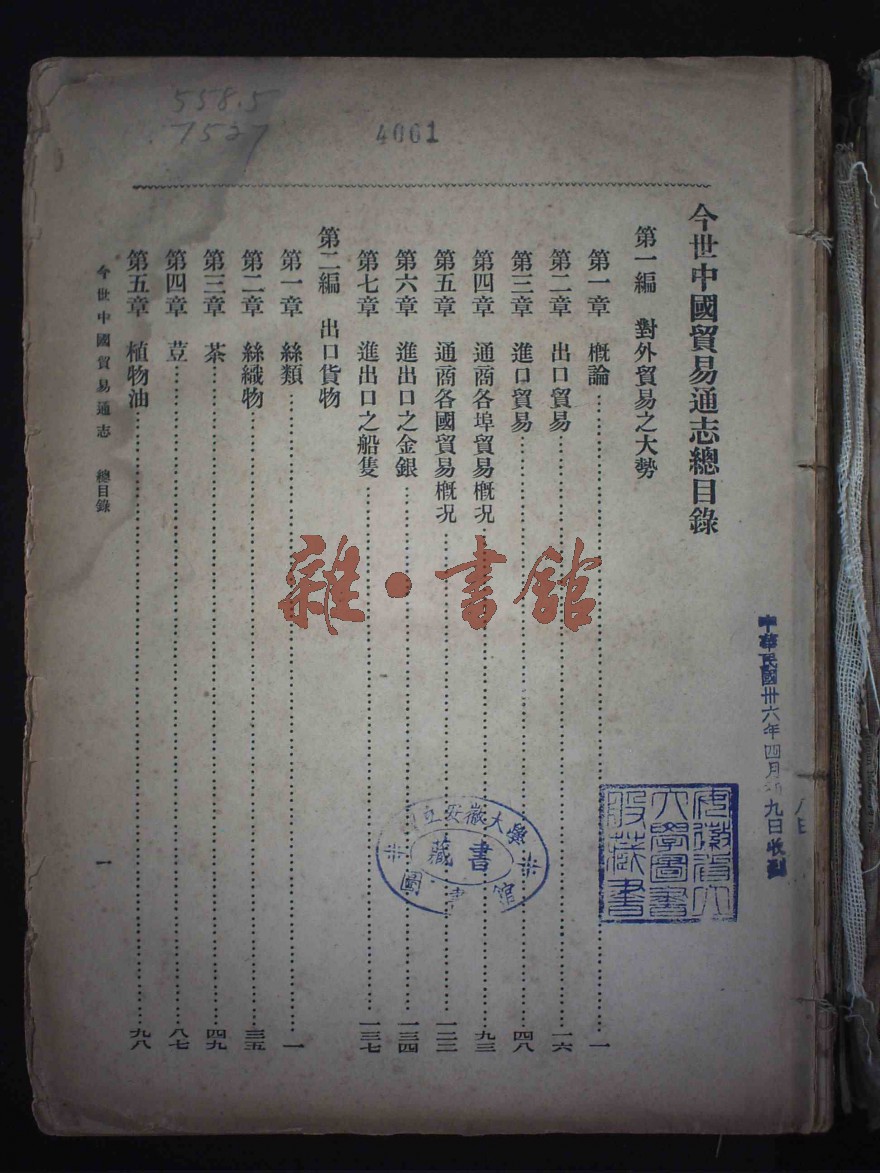 558.5
7527
4061
今世中國貿易通志總目錄
第一編　對外貿易之大勢
第一章　槪論……一
第二章　出口貿易……一六
第三章　進口貿易……四八
第四章　通商各埠貿易槪况……九三
第五章　通商各國貿易槪况……一二二
第六章　進出口之金銀……一三四
第七章　進出口之船隻……一三七
第二編　出口貨物
第一章　絲類……一
第二章　絲織物……三五
第三章　茶……四九
第四章　荳……八七
第五章　植物油……九八
今世中國貿易通志　總目錄
一
雜·書館
中華民國卅六年四月 九日收到
安徽省立大學圖書館藏書
立安徽大學
藏書
圖書館